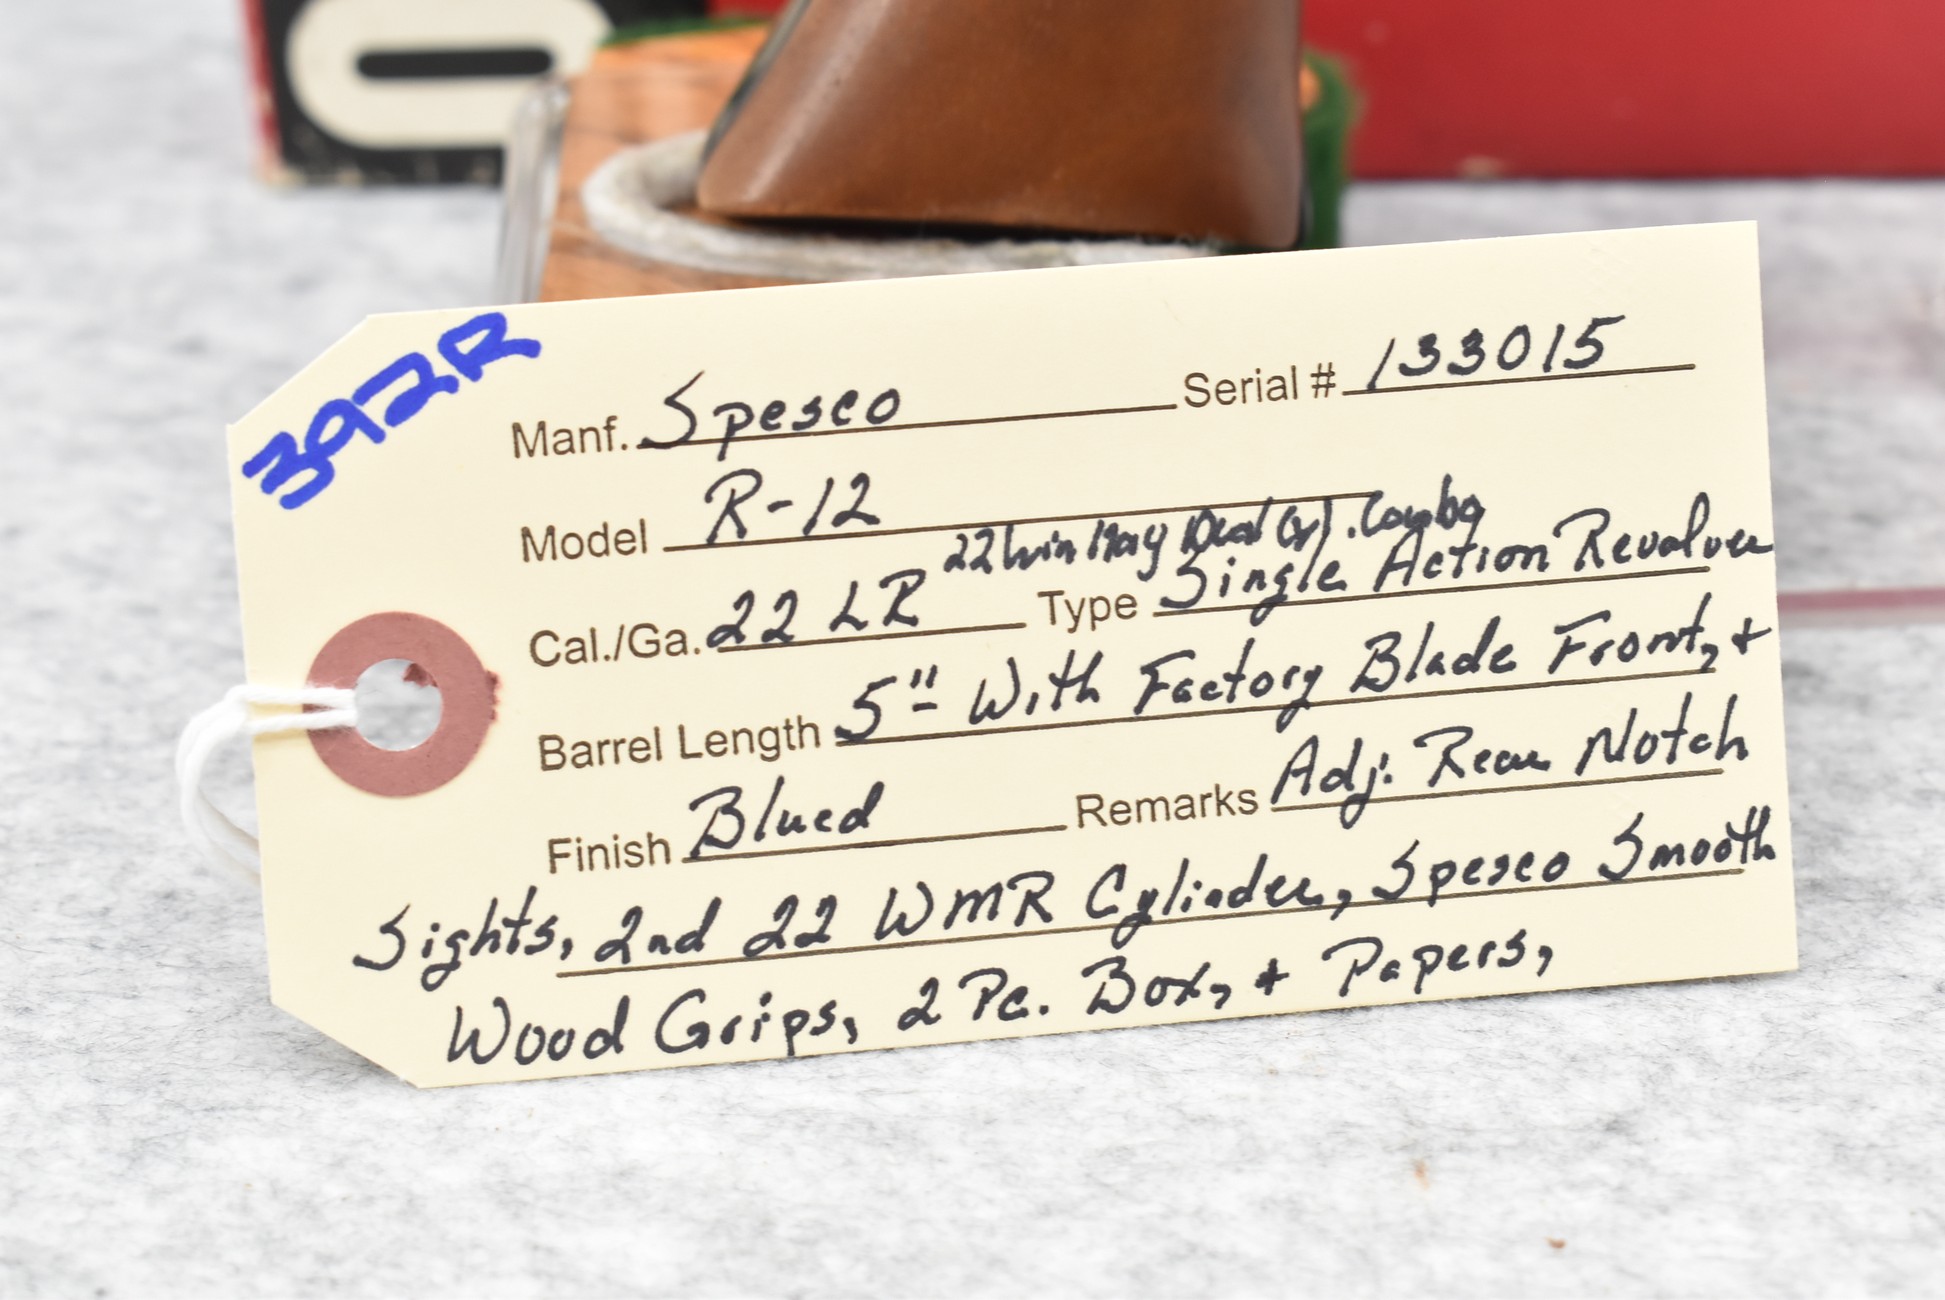 392R
Manf. Spesco Serial # 133015
Model R-12
22 Win Mag Dual Cyl. Combo
Cal./Ga. 22 LR Type Single Action Revolver
Barrel Length 5" With Factory Blade Front, +
Finish Blued Remarks Adj. Rear Notch
Sights, 2nd 22 WMR Cylinder, Spesco Smooth
Wood Grips, 2 Pc. Box, + Papers,